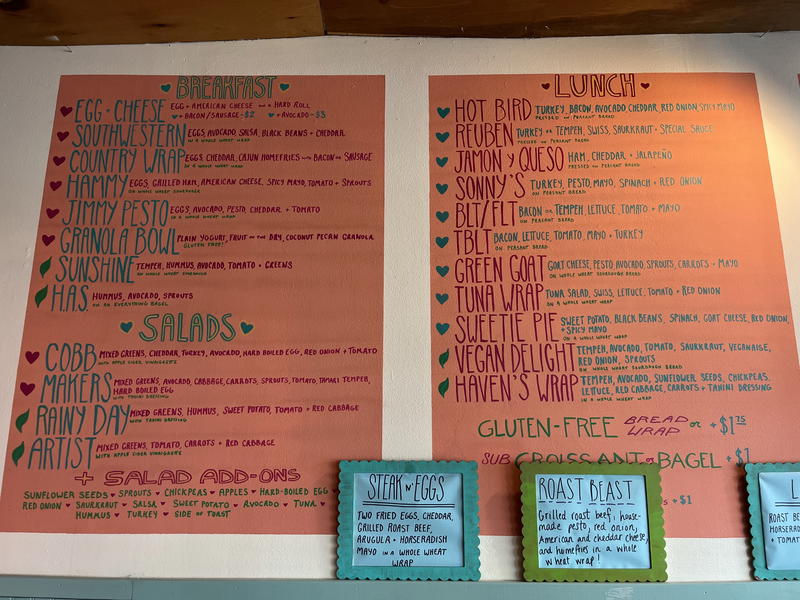 BREAKFAST
EGG + CHEESE EGG + AMERICAN CHEESE on a HARD ROLL
+ BACON/SAUSAGE - $2 + AVOCADO - $3
SOUTHWESTERN EGGS, AVOCADO, SALSA, BLACK BEANS + CHEDDAR
IN A WHOLE WHEAT WRAP
COUNTRY WRAP EGGS, CHEDDAR, CAJUN HOMEFRIES with BACON OR SAUSAGE
IN A WHOLE WHEAT WRAP
HAMMY EGGS, GRILLED HAM, AMERICAN CHEESE, SPICY MAYO, TOMATO + SPROUTS
ON WHOLE WHEAT SOURDOUGH
JIMMY PESTO EGGS, AVOCADO, PESTO, CHEDDAR + TOMATO
IN A WHOLE WHEAT WRAP
GRANOLA BOWL PLAIN YOGURT, FRUIT OF THE DAY, COCONUT PECAN GRANOLA
GLUTEN FREE!
SUNSHINE TEMPEH, HUMMUS, AVOCADO, TOMATO + GREENS
ON WHOLE WHEAT SOURDOUGH
H.A.S. HUMMUS, AVOCADO, SPROUTS
ON AN EVERYTHING BAGEL
SALADS
COBB MIXED GREENS, CHEDDAR, TURKEY, AVOCADO, HARD BOILED EGG, RED ONION + TOMATO
WITH APPLE CIDER VINAIGRETTE
MAKERS MIXED GREENS, AVOCADO, CABBAGE, CARROTS, SPROUTS, TOMATO, TAMARI TEMPEH,
HARD BOILED EGG
WITH TAHINI DRESSING
RAINY DAY MIXED GREENS, HUMMUS, SWEET POTATO, TOMATO + RED CABBAGE
WITH TAHINI DRESSING
ARTIST MIXED GREENS, TOMATO, CARROTS + RED CABBAGE
WITH APPLE CIDER VINAIGRETTE
+ SALAD ADD-ONS
SUNFLOWER SEEDS SPROUTS CHICKPEAS APPLES HARD-BOILED EGG
RED ONION SAURKRAUT SALSA SWEET POTATO AVOCADO TUNA
HUMMUS TURKEY SIDE OF TOAST
LUNCH
HOT BIRD TURKEY, BACON, AVOCADO CHEDDAR, RED ONION, SPICY MAYO
PRESSED ON PEASANT BREAD
REUBEN TURKEY OR TEMPEH, SWISS, SAURKRAUT + SPECIAL SAUCE
PRESSED ON PEASANT BREAD
JAMON y QUESO HAM, CHEDDAR + JALAPEÑO
PRESSED ON PEASANT BREAD
SONNY'S TURKEY, PESTO, MAYO, SPINACH + RED ONION
ON PEASANT BREAD
BLT/FLT BACON OR TEMPEH, LETTUCE, TOMATO + MAYO
ON PEASANT BREAD
TBLT BACON, LETTUCE, TOMATO, MAYO + TURKEY
ON PEASANT BREAD
GREEN GOAT GOAT CHEESE, PESTO, AVOCADO, SPROUTS, CARROTS + MAYO
ON WHOLE WHEAT SOURDOUGH BREAD
TUNA WRAP TUNA SALAD, SWISS, LETTUCE, TOMATO + RED ONION
IN A WHOLE WHEAT WRAP
SWEETIE PIE SWEET POTATO, BLACK BEANS, SPINACH, GOAT CHEESE, RED ONION,
+ SPICY MAYO
IN A WHOLE WHEAT WRAP
VEGAN DELIGHT TEMPEH, AVOCADO, TOMATO, SAURKRAUT, VEGANAISE,
RED ONION, SPROUTS
ON WHOLE WHEAT SOURDOUGH BREAD
HAVEN'S WRAP TEMPEH, AVOCADO, SUNFLOWER SEEDS, CHICKPEAS,
LETTUCE, RED CABBAGE, CARROTS + TAHINI DRESSING
IN A WHOLE WHEAT WRAP
GLUTEN-FREE BREAD or WRAP + $1.75
SUB CROISSANT or BAGEL + $1
+ $1
STEAK N' EGGS
TWO FRIED EGGS, CHEDDAR,
GRILLED ROAST BEEF,
ARUGULA + HORSERADISH
MAYO IN A WHOLE WHEAT
WRAP
ROAST BEAST
Grilled roast beef, house-
made pesto, red onion,
American and cheddar cheese,
and homefries in a whole
wheat wrap!
L
ROAST BE
HORSERAD
+ TOMAT